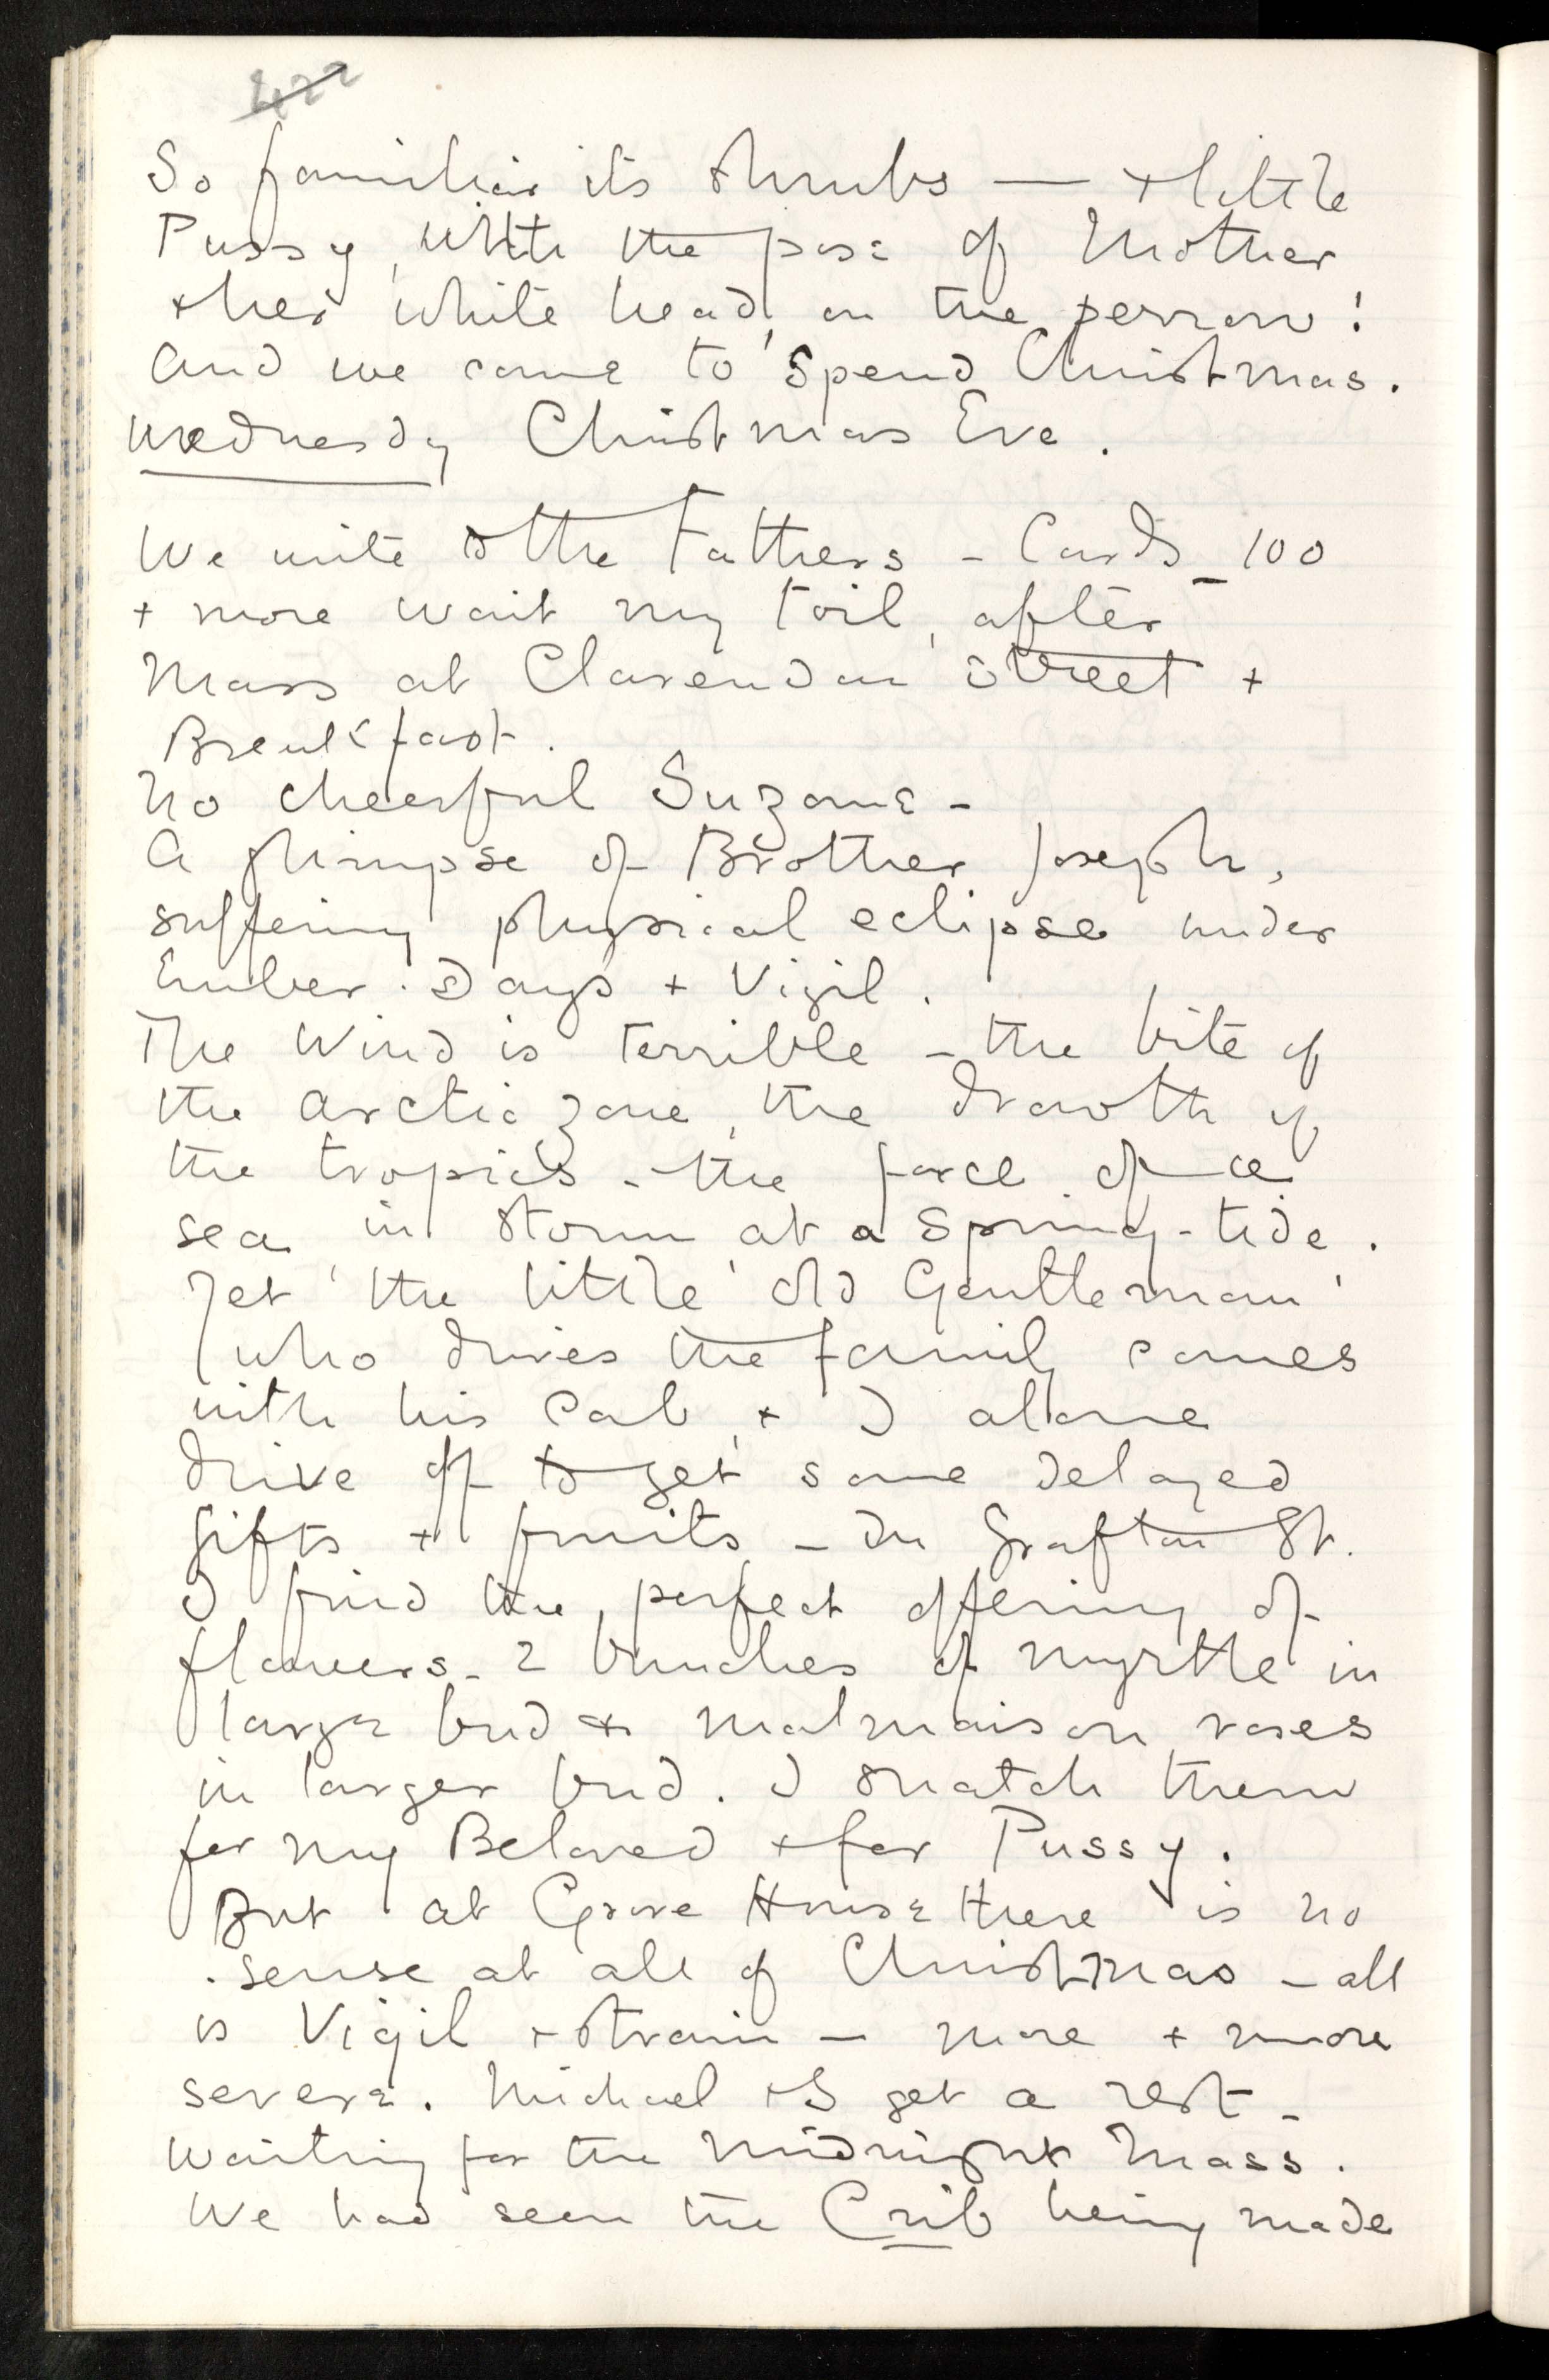 422
So familiar its shrubs — + little
Pussy, with the pose of Mother
+ her white head, on the perron!
And we come to spend Christmas.
Wednesday Christmas Eve.
We write to the Fathers - Cards - 100
+ more wait my toil, after
Mass at Clarendon Street +
Breakfast.
No cheerful Suzanne -
A glimpse of Brother Joseph,
suffering physical eclipse under
Ember-Days + Vigil.
The Wind is terrible - the bite of
the arctic zone, the drowth of
the tropics - the force of a
sea, in storm, at a Spring-tide.
Yet 'the little old Gentleman'
who drives the family comes
with his cab, + I alone
drive off to get some delayed
gifts + fruits - In Grafton St.
I find the perfect offering of
flowers - 2 bunches of myrtle in
large bud + malmaison roses
in larger bud. I snatch them
for my Beloved + for Pussy.
But at Grove House there is no
sense at all of Christmas - all
is Vigil + strain - more + more
severe. Michael + I get a rest -
waiting for the Midnight Mass.
We had seen the Crib being made